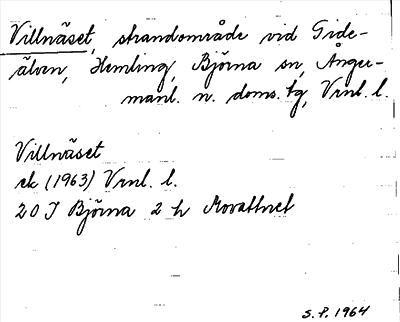 Villnäset, strandområde vid Gide-
älven, Hemling, Björna sn, Ånger-
manl. n. doms. tg, Vrnl. l.
Villnäset
ek (1963) Vrnl. l.
20 J Björna 2 h Movattnet
S.P. 1964